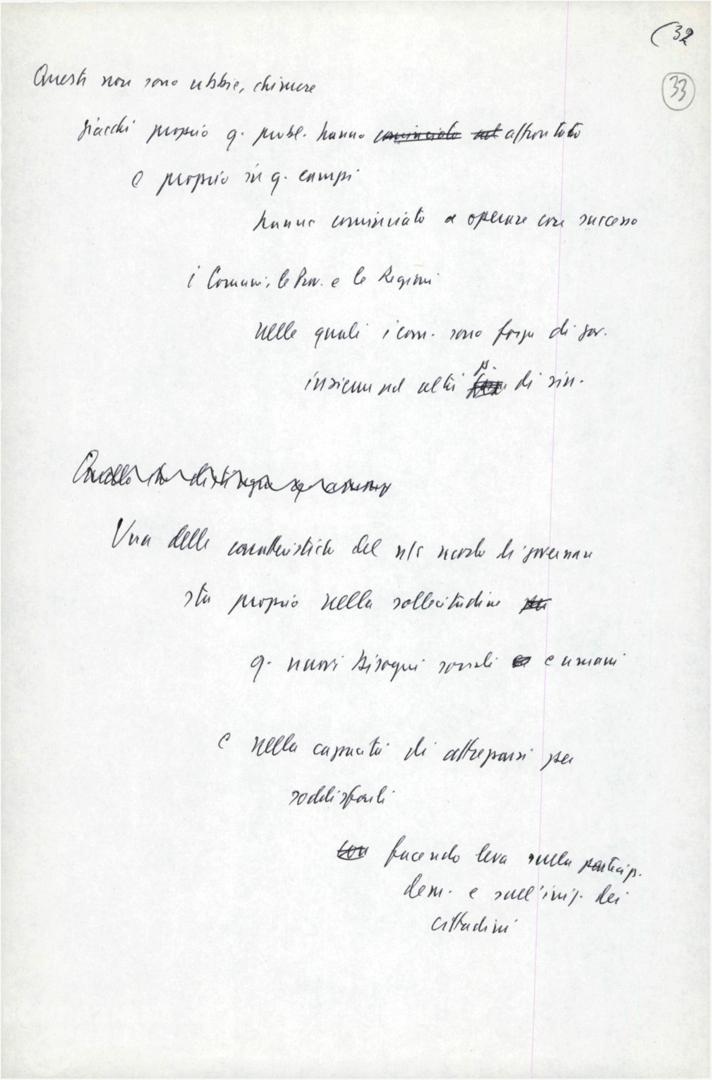 (32
33
Questi non sono ubbie, chimere
giacché proprio q. probl. hanno cominciato ad affrontato
e proprio in q. campi
hanno cominciato a operare con successo
i Comuni, le Prov. e le Regioni
nelle quali i com. sono forza di gov.
insieme ad altri
p.
di sin.
Quello che distingue
Una delle caratteristiche del n/s modo di governare
sta proprio nella sollecitudine
q. nuovi bisogni sociali e umani
e nella capacità di attrezzarsi per
soddisfarli
con facendo leva sulla particip.
dem. e sull'iniz. dei
cittadini